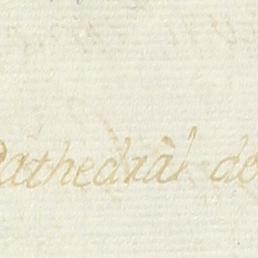 Cathedràl de